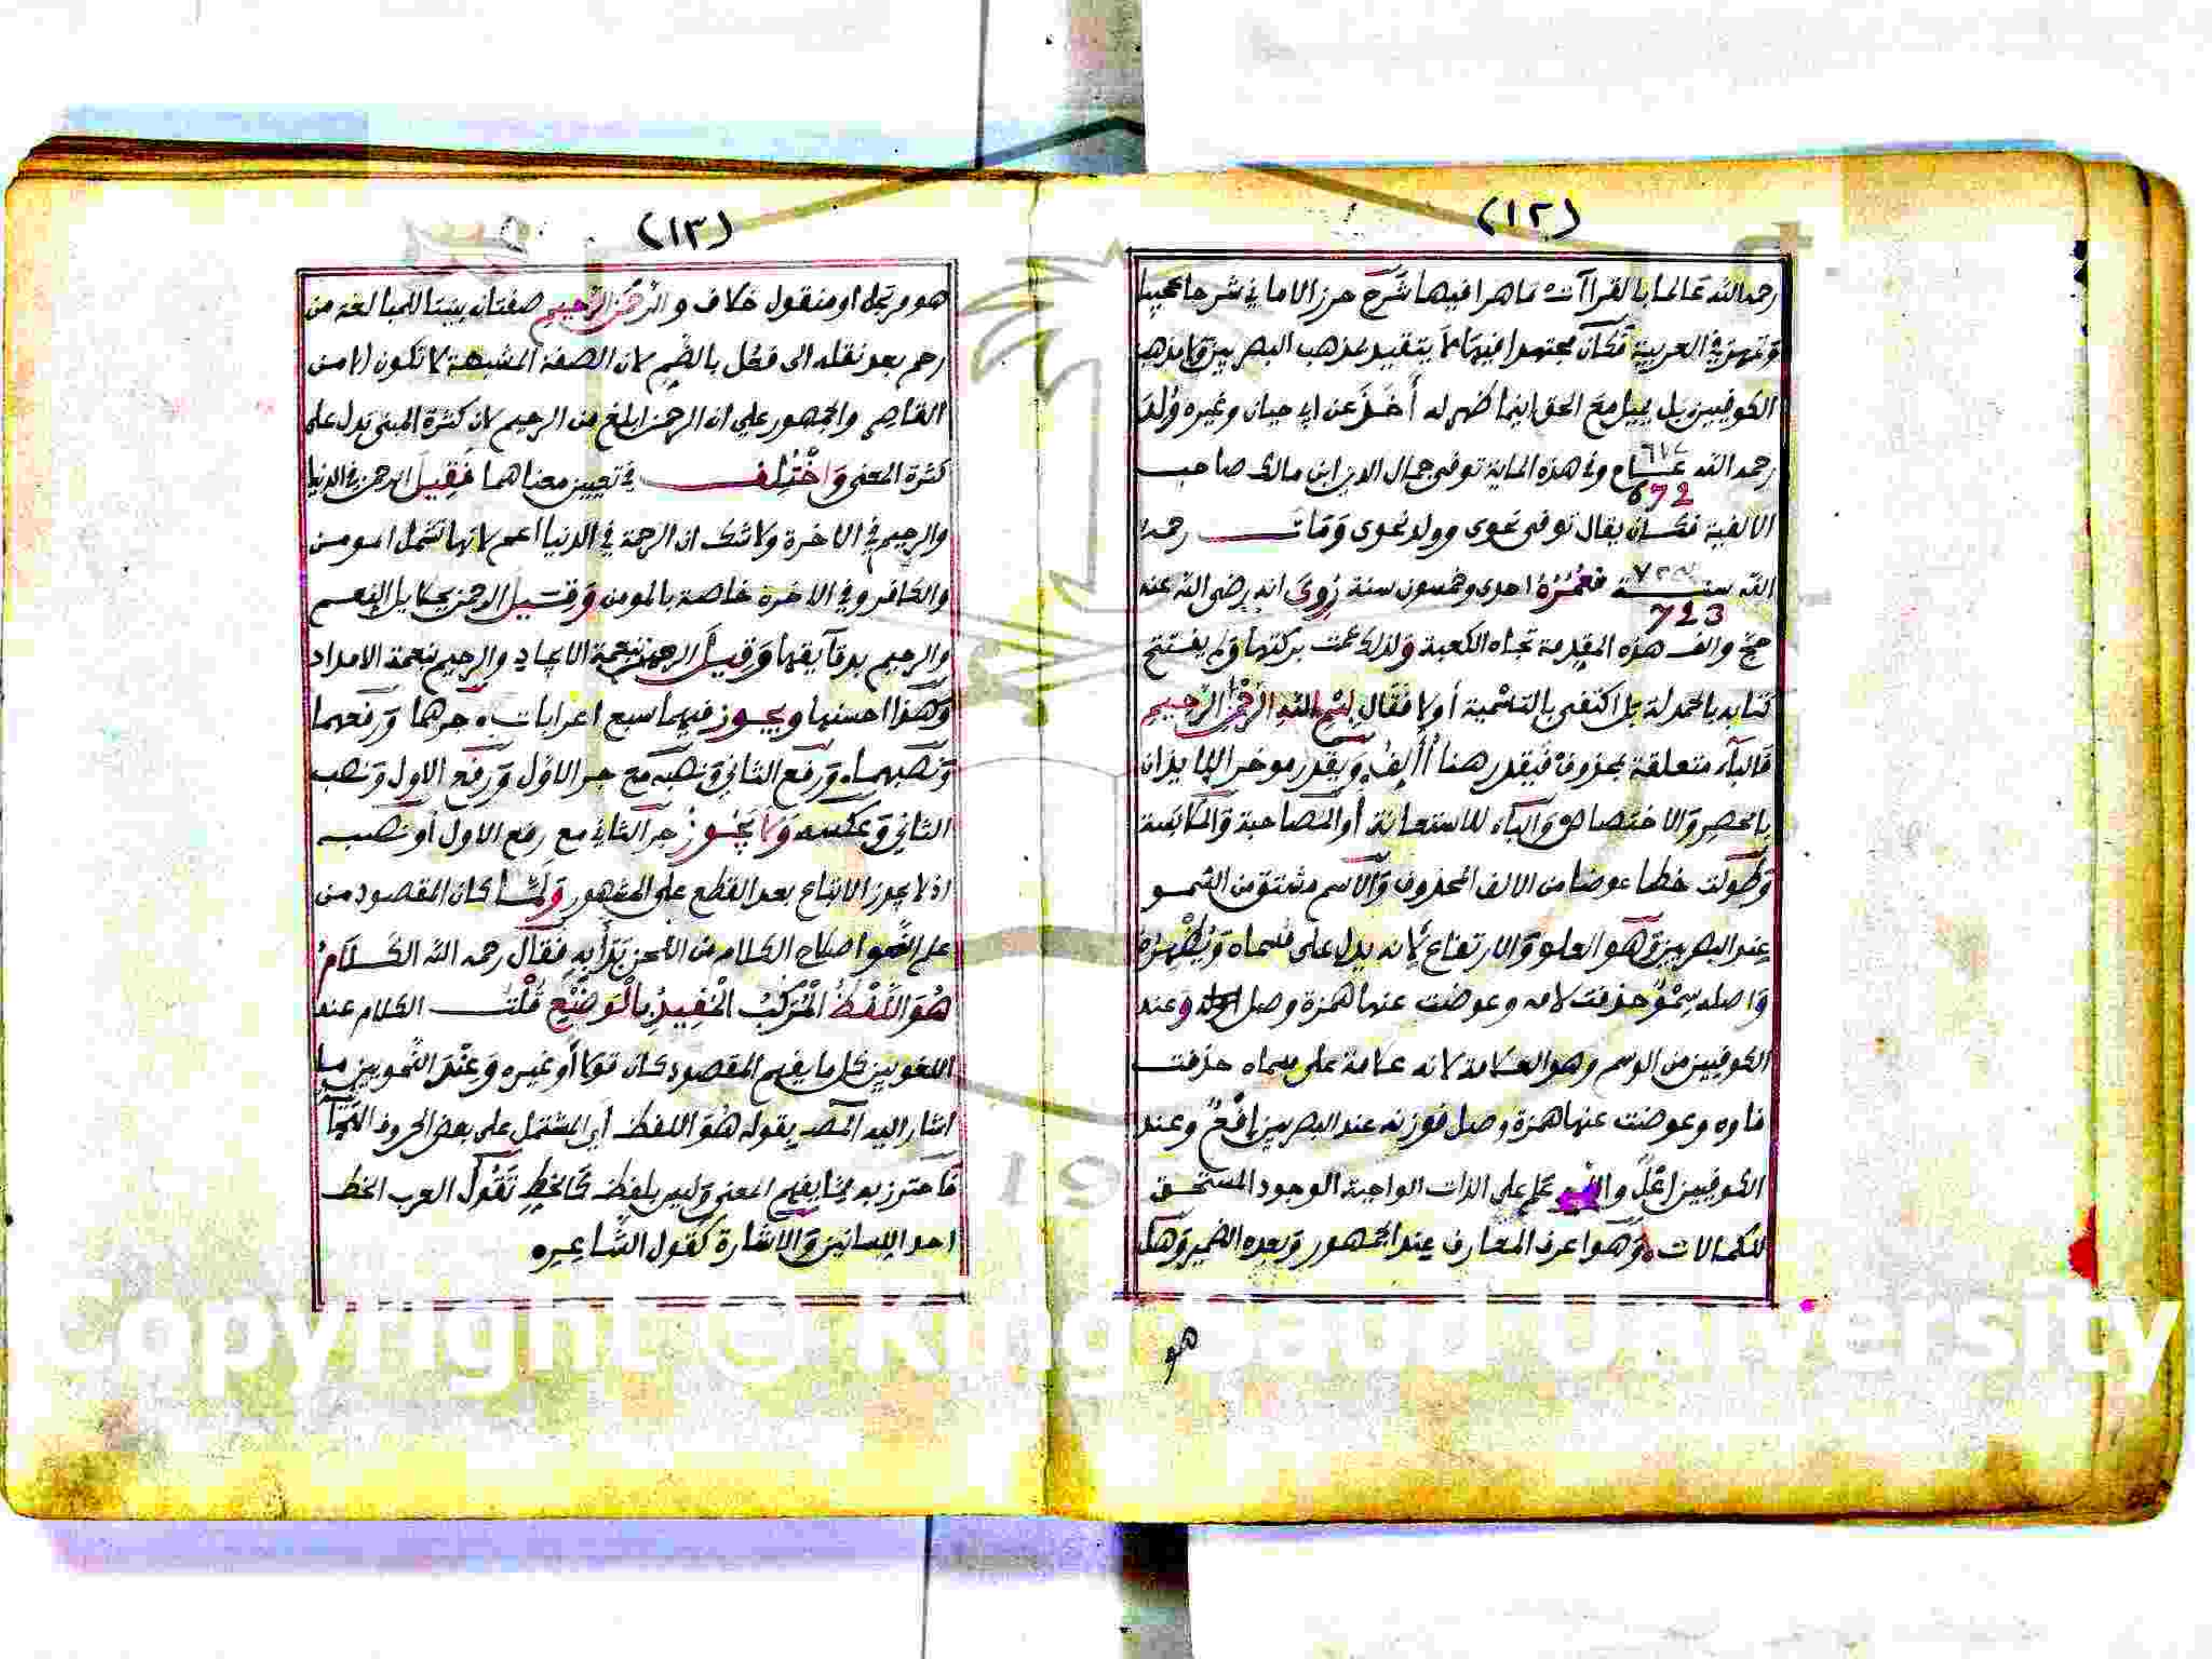 (١٢)
رحمه الله عالما بالقراآت ماهرا فيها شرح حرز الاماني شرحا عجيبا
وتمهر في العربية فكان مجتهدا فيها لا يتقيد بمذهب البصريين ولا بمذهب
الكوفيين بل يميل مع الحق اينما ظهر له أخذ عن ابي حيان وغيره ولد
رحمه الله وفي هذه الماية توفي جمال الدين ابن مالك صاحب
672
الالفية فكان يقال توفي نحوى وولد نحوى ومات رحمه
الله سنة فعمره احدى وخمسون سنة روي انه رضى الله عنه
723
حج والف هذه المقدمة تجاه الكعبة ولذلك عمت بركتها ولم يفتتح
كتابه بالحمدلة بل اكتفى بالتسمية أولا فقال بسم الله الرحمن الرحيم
فالباء متعلقة بمحذوف فيقدر هنا أألف ويقدر موخر الايذان
بالحصر والاختصاص والباء للاستعانة أو المصاحبة والملابسة
وطولت خطا عوضا من الالف المحذوف والاسم مشتق من السمو
عند البصريين وهو العلو والارتفاع لانه يدل على مسماه ويظهره
واصله سمو حذفت لامه وعوضت عنها همزة وصل وعند
الكوفيين من الوسم وهو العلامة لانه علامة على مسماه حذفت
فاوه وعوضت عنها همزة وصل فوزنه عند البصريين افع وعند
الكوفيين اعل والله علم على الذات الواجبة الوجود المستحق
للكمالات وهو اعرف المعارف عند الجمهور وبعده الضمير وهل
هو
(١٣)
هو مرتجل او منقول خلاف والرحمن الرحيم صفتان بنيتا للمبالغة من
رحم بعد نقله الى فعل بالضم لان الصفة المشبهة لا تكون الا من
القاصر والجمهور على ان الرحمن ابلغ من الرحيم لان كثرة المبنى تدل على
كثرة المعنى واختلف في تعيين معناهما فقيل الرحمن في الدنيا
والرحيم في الاخرة ولا شك ان الرحمة في الدنيا اعم لانها تشمل المومن
والكافر وفي الاخرة خاصة بالمومن وقيل الرحمن بجلايل النعم
والرحيم بدقآيقها وقيل الرحمن بنعمة الايجاد والرحيم بنعمة الامداد
وهذا احسنها ويجوز فيهما سبع اعرابات جرهما ورفعهما
ونصبهما ورفع الثاني ونصبه مع جر الاول ورفع الاول ونصب
الثاني وعكسه ولا يجوز جر الثاني مع رفع الاول أو نصبه
اذ لا يجوز الاتباع بعد القطع على المشهور ولما كان المقصود من
علم النحو اصلاح الكلام من اللحن بدأ به فقال رحمه الله الكلام
هو اللفظ المركب المفيد بالوضع قلت الكلام عند
اللغويين كل ما يفهم المقصود كان قولا أو غيره وعند النحويين ما
اشار اليه المصـ بقوله هو اللفظ أي المشتمل على بعض الحروف الهجائية
فاحترز به مما يفهم المعنى وليس بلفظ كالخط تقول العرب الخط
احد اللسانين والاشارة كقول الشاعر
Copyright © King Saud University